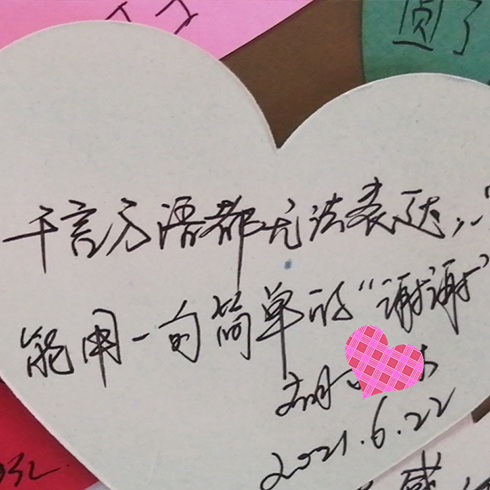 圆了
千言万语都无法表达，
能用一句简单的“谢谢”
2021.6.22
感